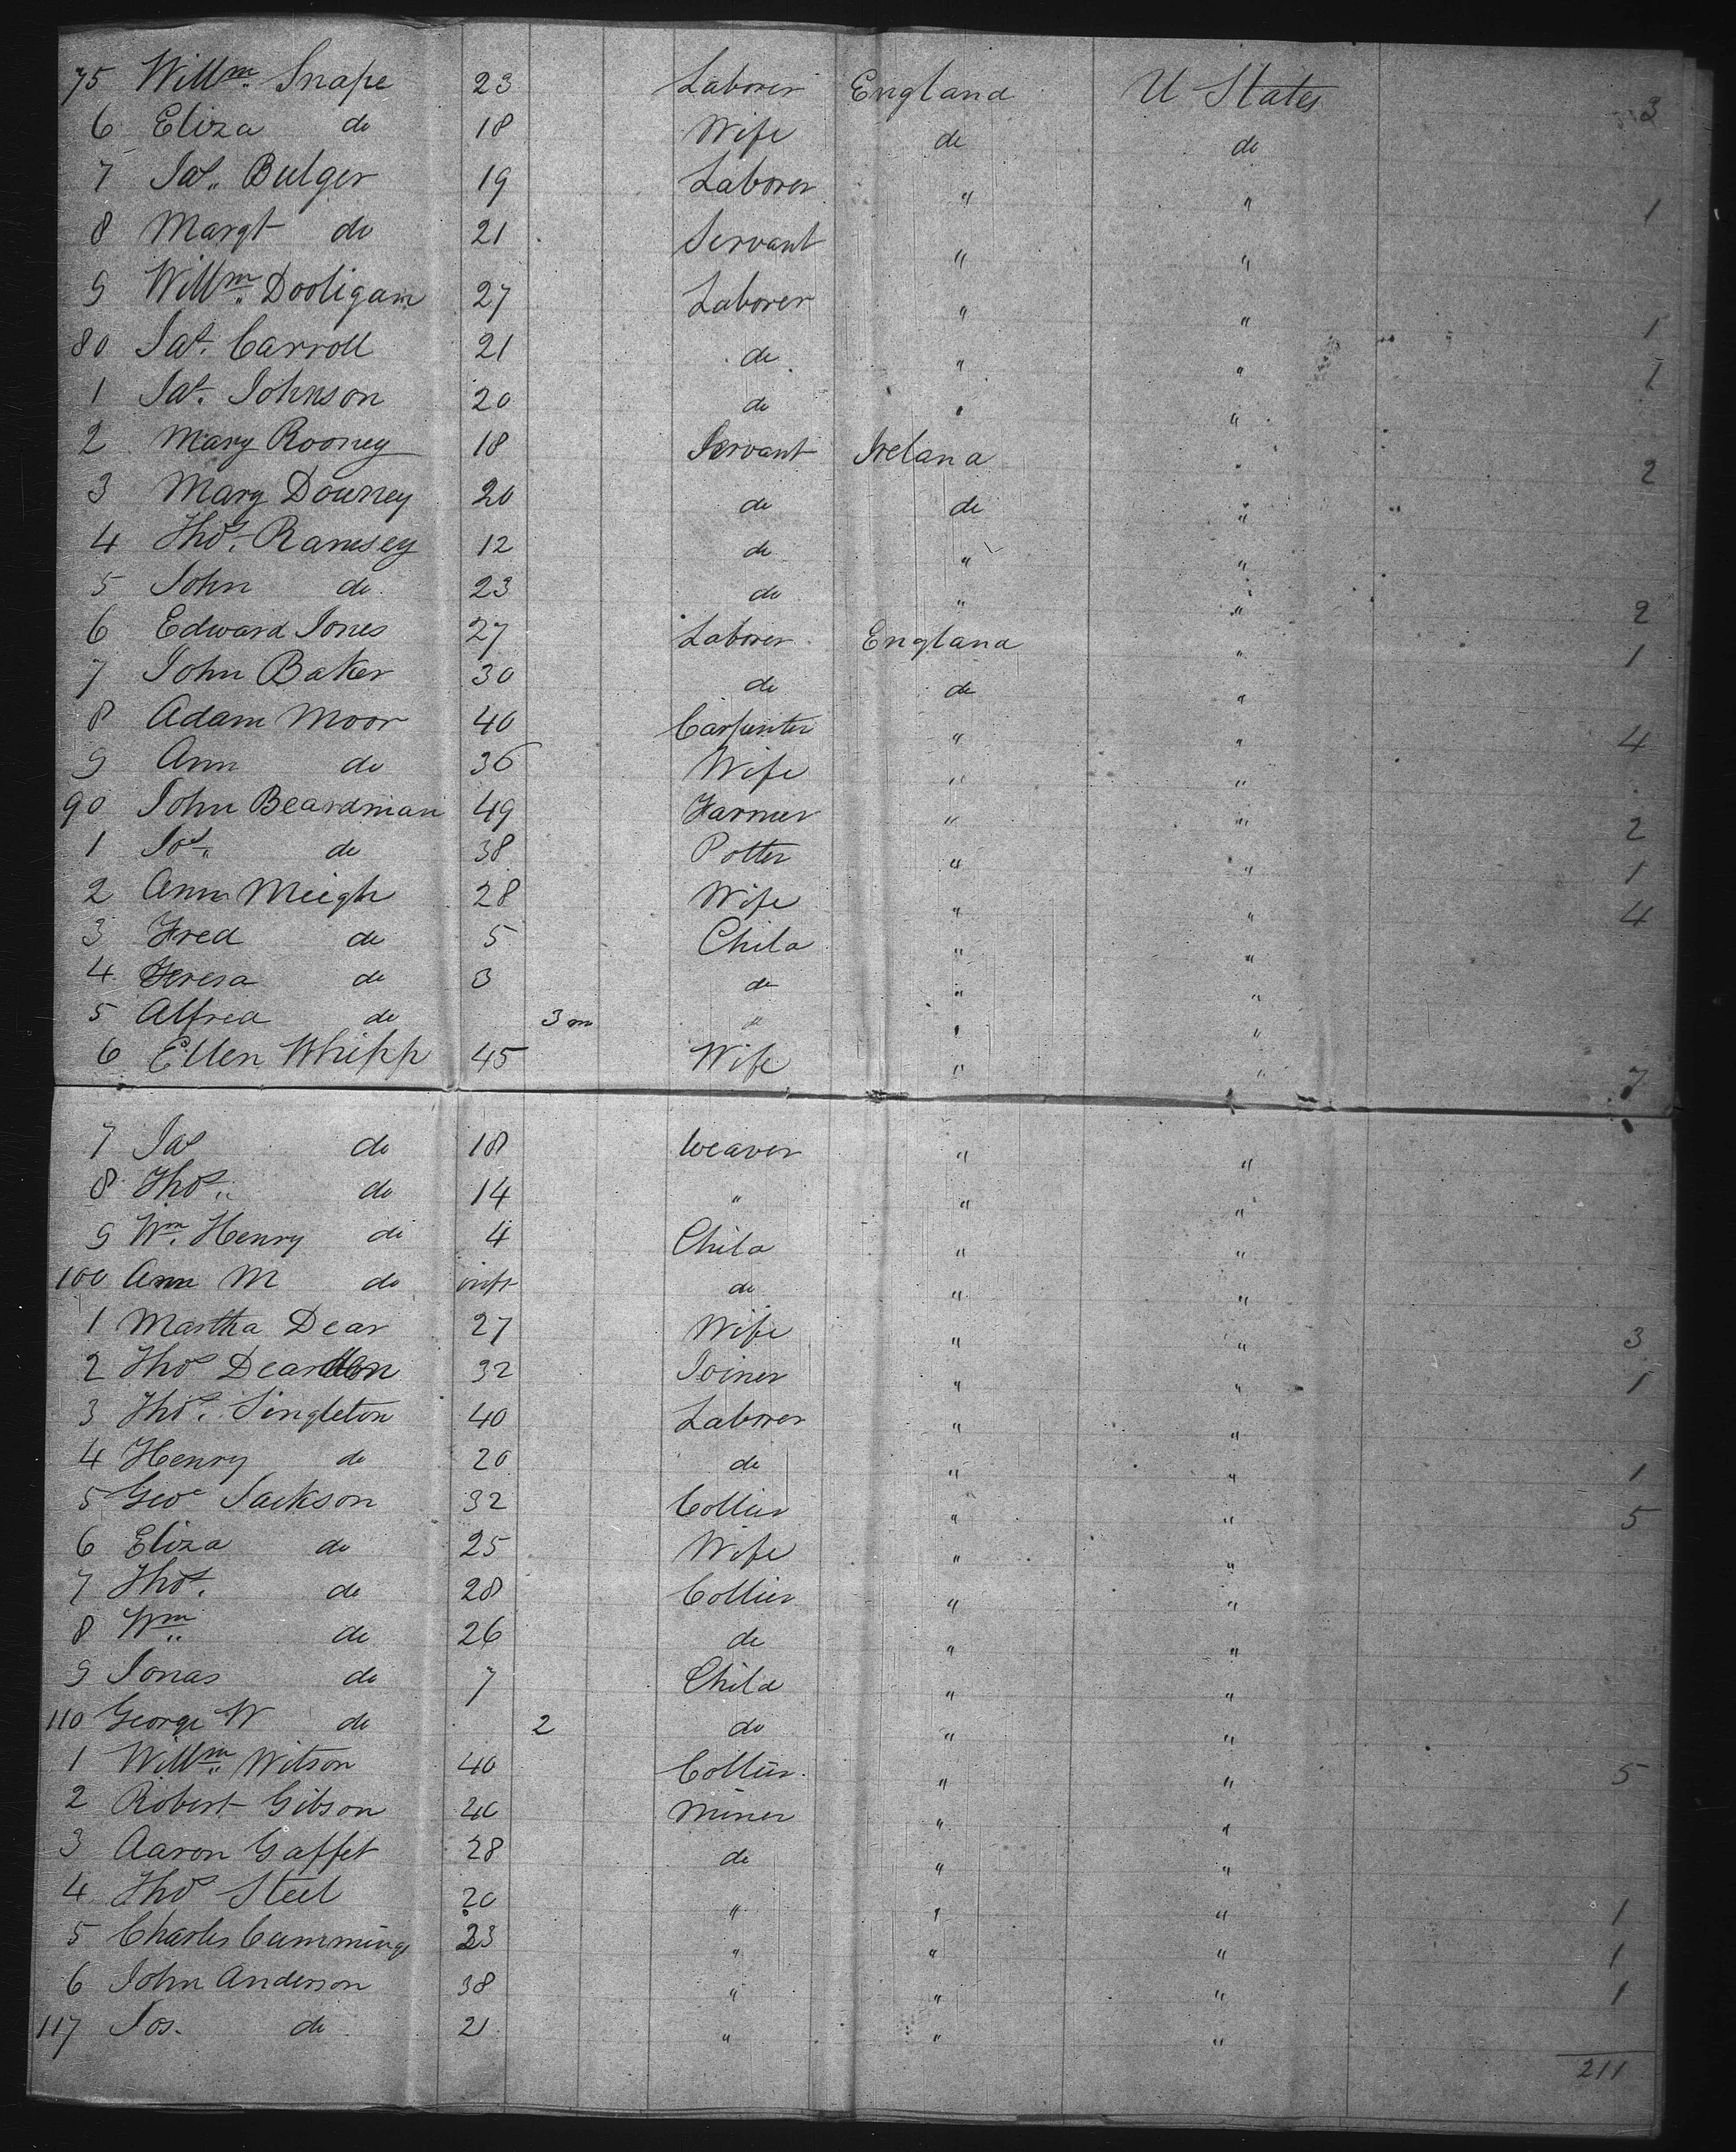 75 Willm. Snape 23 Laborer England U States 3
6 Eliza do 18 Wife do do
7 Jas. Bulger 19 Laborer " " 1
8 Margt do 21 Servant " "
9 Willm. Dooligam 27 Laborer " " 1
80 Jas. Carroll 21 do " " 1
1 Jas. Johnson 20 do " "
2 Mary Rooney 18 Servant Ireland " 2
3 Mary Downey 20 do do "
4 Thos. Ramsey 12 do " "
5 John do 23 do " " 2
6 Edward Jones 27 Laborer England " 1
7 John Baker 30 do do "
8 Adam Moor 40 Carpenter " " 4
9 Ann do 36 Wife " "
90 John Beardman 49 Farmer " " 2
1 Jos. do 38 Potter " " 1
2 Ann Meigh 28 Wife " " 4
3 Fred do 5 Child " "
4 Teresa do 3 do " "
5 Alfred do 3 m " " "
6 Ellen Whipp 45 Wife " " 7
7 Jas do 18 Weaver " "
8 Thos. do 14 " " "
9 Wm. Henry do 4 Child " "
100 Ann M do inft do " "
1 Martha Dear 27 Wife " " 3
2 Thos Dearden 32 Joiner " " 1
3 Thos. Singleton 40 Laborer " "
4 Henry do 20 do " " 1
5 Geo Jackson 32 Collier " " 5
6 Eliza do 25 Wife " "
7 Thos. do 28 Collier " "
8 Wm. do 26 do " "
9 Jonas do 7 Child " "
110 George W do 2 do " "
1 Willm. Wilson 40 Collier " " 5
2 Robert Gibson 40 Miner " "
3 Aaron Gaffet 28 do " "
4 Thos Steel 20 " " " 1
5 Charles Cummings 23 " " " 1
6 John Anderson 38 " " " 1
117 Jos. do 21 " " "
211